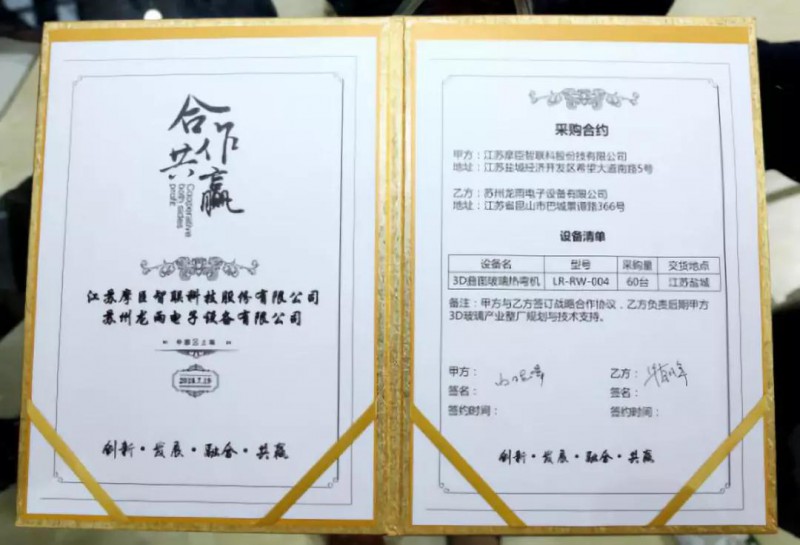 合作
共赢
Cooperative
both sides
profit
江苏摩臣智联科技股份有限公司
苏州龙雨电子设备有限公司
中国上海
2019.7.19
创新·发展·融合·共赢
采购合约
甲方：江苏摩臣智联科股份技有限公司
地址：江苏盐城经济开发区希望大道南路5号
乙方：苏州龙雨电子设备有限公司
地址：江苏省昆山市巴城景谭路366号
设备清单
设备名 型号 采购量 交货地点
3D曲面玻璃热弯机 LR-RW-004 60台 江苏盐城
备注：甲方与乙方签订战略合作协议，乙方负责后期甲方
3D玻璃产业整厂规划与技术支持。
甲方： 乙方：
签名： 签名：
签约时间： 签约时间：
创新·发展·融合·共赢